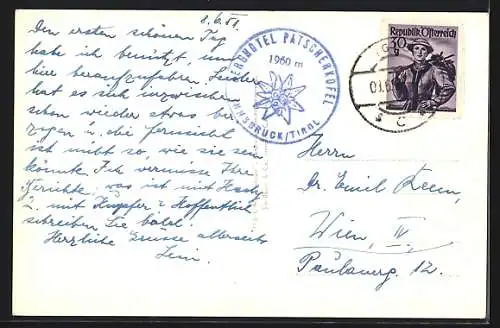 8.6.51
Den ersten schönen Tag
habe ich benützt, um
hier heraufzufahren. Leider
hat es sich inzwischen
schon wieder etwas be
zogen u. die Fernsicht
ist nicht so, wie sie sein
könnte. Ich vermisse Ihre
Berichte; was ist mit
u. mit Hupfer? Hoffentlich
schreiben Sie bald.
Herzliche Grüsse allerseits
BERGHOTEL PATSCHERKOFEL
1960 m
INNSBRUCK/TIROL
Republik Österreich
30
IGLS
Herrn
Dr. Emil
Wien, IV.
Paulanerg. 12.